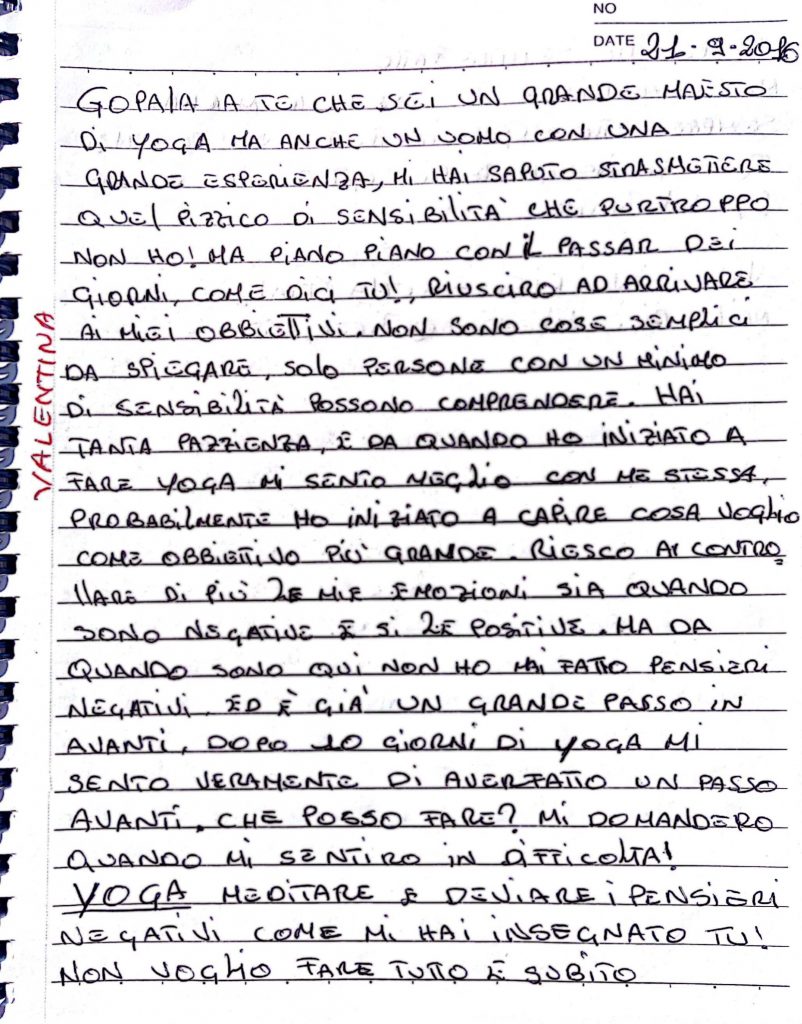 NO
DATE 21-9-2016
GOPALA A TE CHE SEI UN GRANDE MAESTO
DI YOGA MA ANCHE UN UOMO CON UNA
GRANDE ESPERIENZA, MI HAI SAPUTO STRASMETTERE
QUEL PIZZICO DI SENSIBILITÀ CHE PURTROPPO
NON HO! MA PIANO PIANO CON IL PASSAR DEI
GIORNI, COME DICI TU!, RIUSCIRO AD ARRIVARE
AI MIEI OBBIETTIVI. NON SONO COSE SEMPLICI
DA SPIEGARE, SOLO PERSONE CON UN MINIMO
DI SENSIBILITÀ POSSONO COMPRENDERE. HAI
TANTA PAZZIENZA, E DA QUANDO HO INIZIATO A
FARE YOGA MI SENTO MEGLIO CON ME STESSA,
PROBABILMENTE HO INIZIATO A CAPIRE COSA VOGLIO
COME OBBIETTIVO PIÙ GRANDE. RIESCO AI CONTRO
LLARE DI PIÙ LE MIE EMOZIONI SIA QUANDO
SONO NEGATIVE E SI LE POSITIVE. MA DA
QUANDO SONO QUI NON HO MAI FATTO PENSIERI
NEGATIVI. ED È GIÀ UN GRANDE PASSO IN
AVANTI, DOPO 10 GIORNI DI YOGA MI
SENTO VERAMENTE DI AVER FATTO UN PASSO
AVANTI. CHE POSSO FARE? MI DOMANDERO
QUANDO MI SENTIRO IN DIFFICOLTA!
YOGA MEDITARE E DEVIARE I PENSIERI
NEGATIVI COME MI HAI INSEGNATO TU!
NON VOGLIO FARE TUTTO E SUBITO
VALENTINA